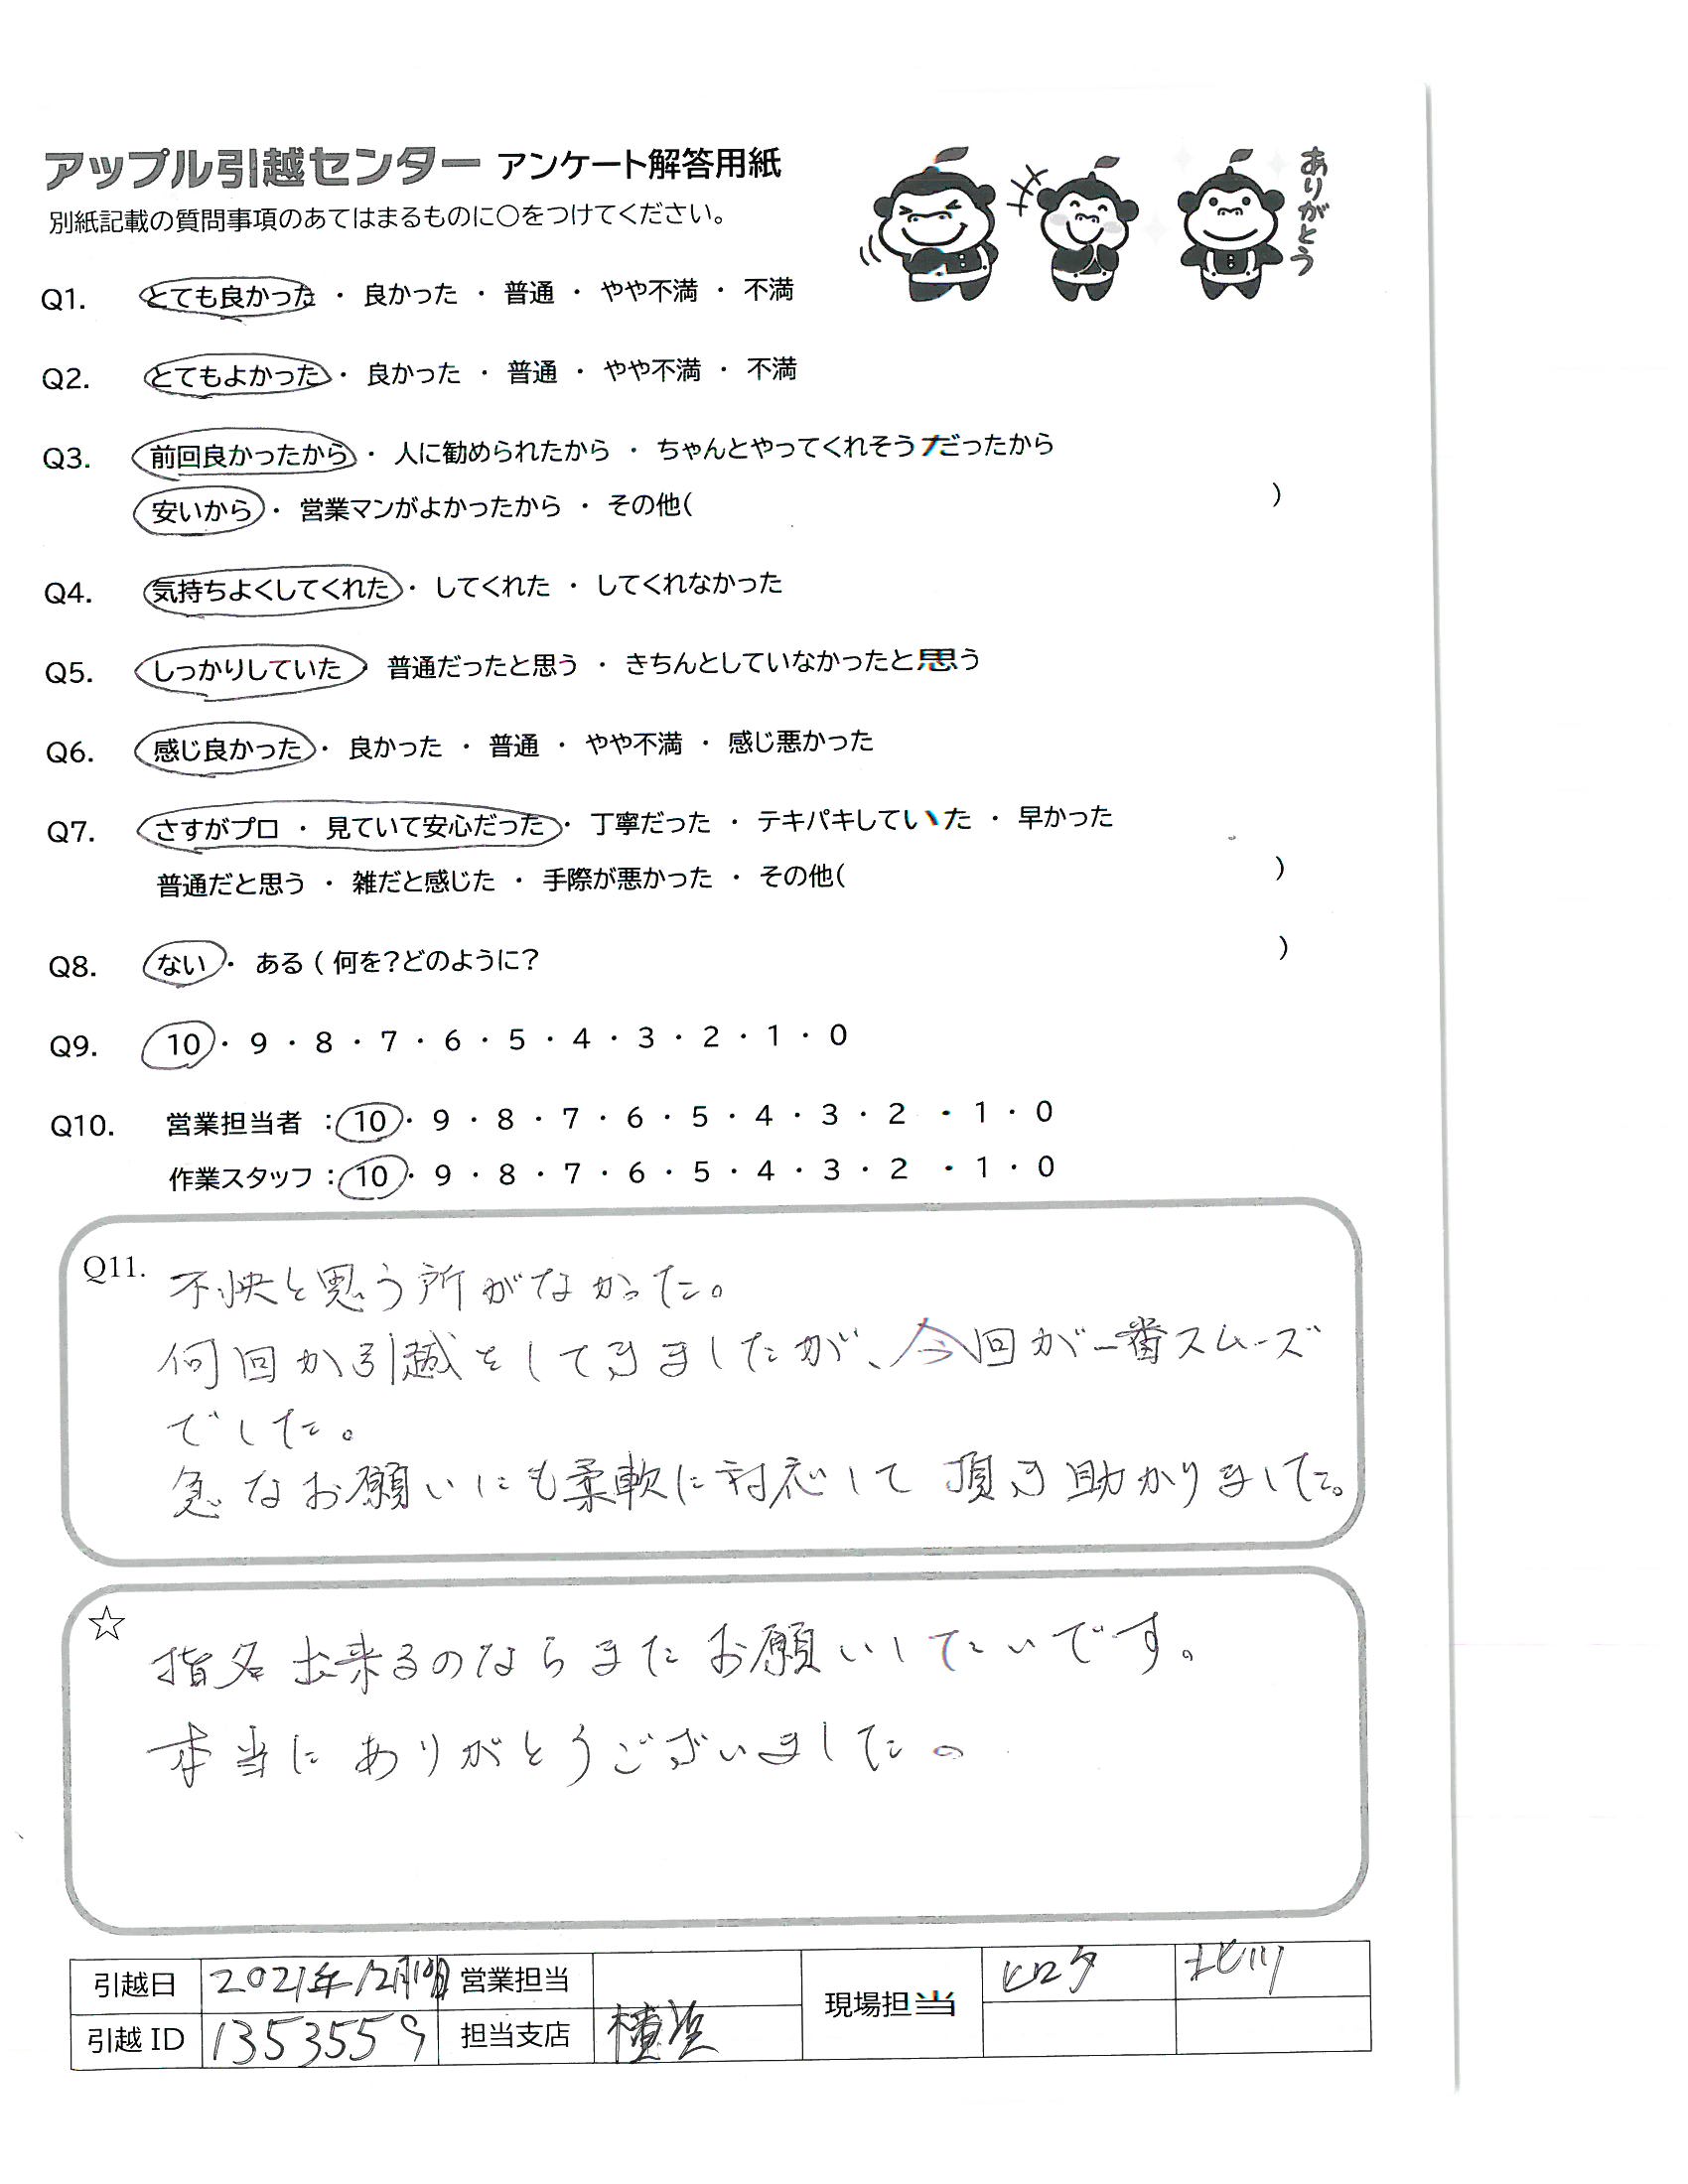 アップル引越センター アンケート解答用紙
ありがとう
別紙記載の質問事項のあてはまるものに○をつけてください。
Q1. とても良かった ・ 良かった ・ 普通 ・ やや不満 ・ 不満
Q2. とてもよかった ・ 良かった ・ 普通 ・ やや不満 ・ 不満
Q3. 前回良かったから ・ 人に勧められたから ・ ちゃんとやってくれそうだったから
安いから ・ 営業マンがよかったから ・ その他( )
Q4. 気持ちよくしてくれた ・ してくれた ・ してくれなかった
Q5. しっかりしていた ・ 普通だったと思う ・ きちんとしていなかったと思う
Q6. 感じ良かった ・ 良かった ・ 普通 ・ やや不満 ・ 感じ悪かった
Q7. さすがプロ ・ 見ていて安心だった ・ 丁寧だった ・ テキパキしていた ・ 早かった
普通だと思う ・ 雑だと感じた ・ 手際が悪かった ・ その他( )
Q8. ない ・ ある ( 何を?どのように? )
Q9. 10 ・ 9 ・ 8 ・ 7 ・ 6 ・ 5 ・ 4 ・ 3 ・ 2 ・ 1 ・ 0
Q10. 営業担当者 : 10 ・ 9 ・ 8 ・ 7 ・ 6 ・ 5 ・ 4 ・ 3 ・ 2 ・ 1 ・ 0
作業スタッフ : 10 ・ 9 ・ 8 ・ 7 ・ 6 ・ 5 ・ 4 ・ 3 ・ 2 ・ 1 ・ 0
Q11. 不快と思う所がなかった。
何回か引越をしてきましたが、今回が一番スムーズ
でした。
急なお願いにも柔軟に対応して頂き助かりました。
☆
指名出来るのならまたお願いしたいです。
本当にありがとうございました。
引越日 2021年12月 営業担当 現場担当 ヒロタ 北川
引越 ID 1353559 担当支店 横浜